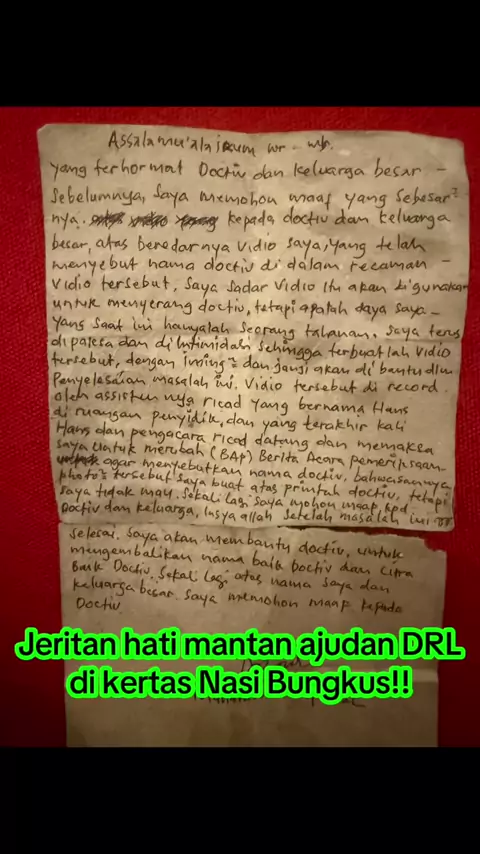 Assalamu'alaikum wr - wb.
yang terhormat Doctiv dan keluarga besar -
Sebelumnya, saya memohon maaf yang sebesar²
nya. kepada doctiv dan keluarga
besar, atas beredarnya vidio saya, yang telah
menyebut nama doctiv di dalam recaman -
vidio tersebut, saya sadar vidio itu akan di gunakan
untuk menyerang doctiv, tetapi apalah daya saya -
yang saat ini hanyalah seorang tahanan. saya terus
di paksa dan di intimidasi sehingga terbuatlah vidio
tersebut, dengan iming² dan janji akan di bantu dlm
Penyelesaian masalah ini. vidio tersebut di record
oleh assisten nya ricad yang bernama Hans
di ruangan penyidik, dan yang terakhir kali
Hans dan pengacara ricad datang dan memaksa
saya untuk merubah (BAP) Berita Acara pemeriksaan
agar menyebutkan nama doctiv, bahwasannya
photo² tersebut saya buat atas printah doctiv, tetapi
saya tidak mau. sekali lagi saya mohon maap, kpd
Doctiv dan keluarga, insya allah setelah masalah ini
selesai. saya akan membantu doctiv, untuk
mengembalikan nama baik Doctiv dan Citra
Baik Doctiv. sekali lagi atas nama saya dan
keluarga besar. saya memohon maap kepada
Doctiv
Jeritan hati mantan ajudan DRL
di kertas Nasi Bungkus!!